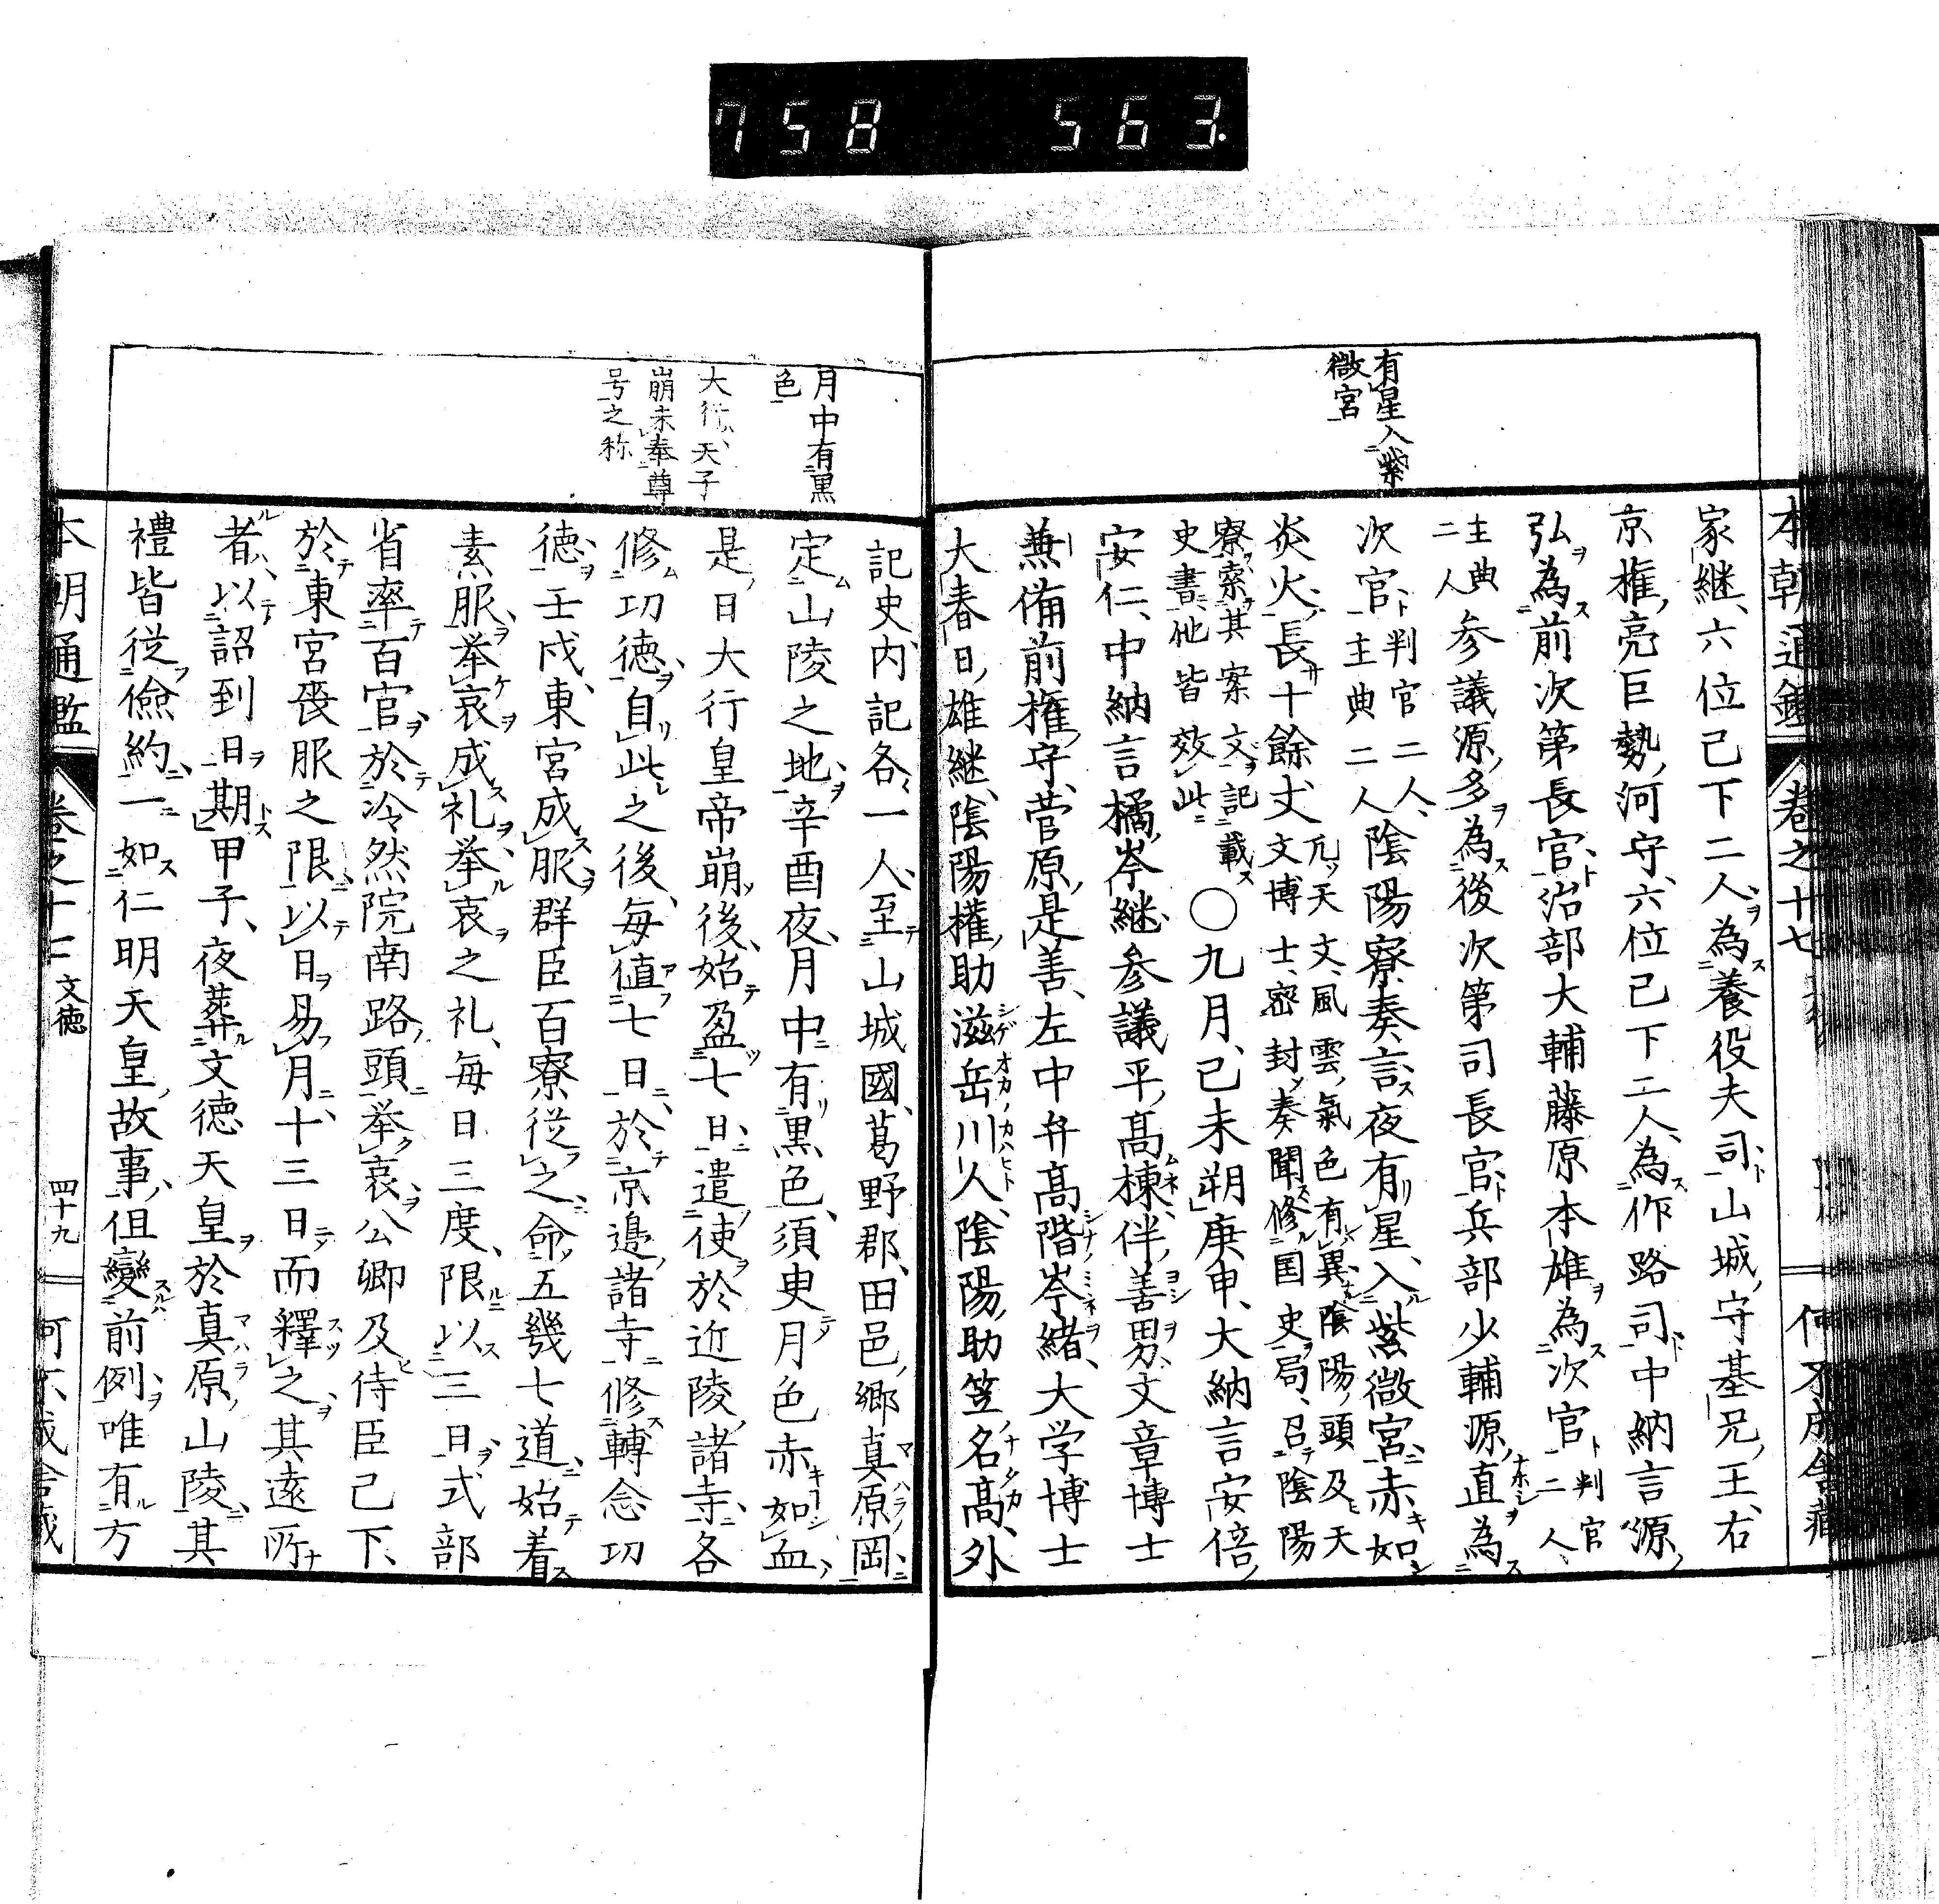 758 563
有星入紫
微宮
本朝通鑑 卷之十七
家継、六位已下二人、為養役夫司、山城守基兄王、右
京権亮巨勢河守、六位已下二人、為作路司、中納言源
弘為前次第長官、治部大輔藤原本雄為次官、判官二人、
主典二人、参議源多為後次第司長官、兵部少輔源直為
次官、判官二人、主典二人、陰陽寮奏言、夜有星、入紫微宮、赤如
炎火、長十餘丈、凡天文風雲氣色有異、陰陽頭及天
文博士、密封奏聞、修国史局、召陰陽
寮索其案文、記載
史書、他皆效此、○九月、己未朔庚申、大納言安倍
安仁、中納言橘岑継、参議平高棟、伴善男、文章博士
兼備前権守菅原是善、左中弁高階岑緒、大学博士
大春日雄継、陰陽権助滋岳川人、陰陽助笠名高、外
月中有黒
色
大行、天子
崩未奉尊
号之称
記史、内記各一人、至山城國葛野郡、田邑郷真原岡
定山陵之地、辛酉夜、月中有黒色、須臾月色赤如血、
是日大行皇帝崩後、始盈七日、遣使於近陵諸寺、各
修功徳、自此之後、毎値七日、於京邊諸寺、修轉念功
徳、壬戌、東宮成服、群臣百寮従之、命五畿七道、始着
素服、挙哀成礼、挙哀之礼、毎日三度、限以三日、式部
省率百官、於冷然院南路頭挙哀、公卿及侍臣已下、
於東宮喪服之限、以日易月、十三日而釋之、其遠所
者、以詔到日期、甲子、夜葬文徳天皇於真原山陵、其
禮皆従儉約、一如仁明天皇故事、但變前例、唯有方
本朝通鑑 卷之十 文徳 四十九